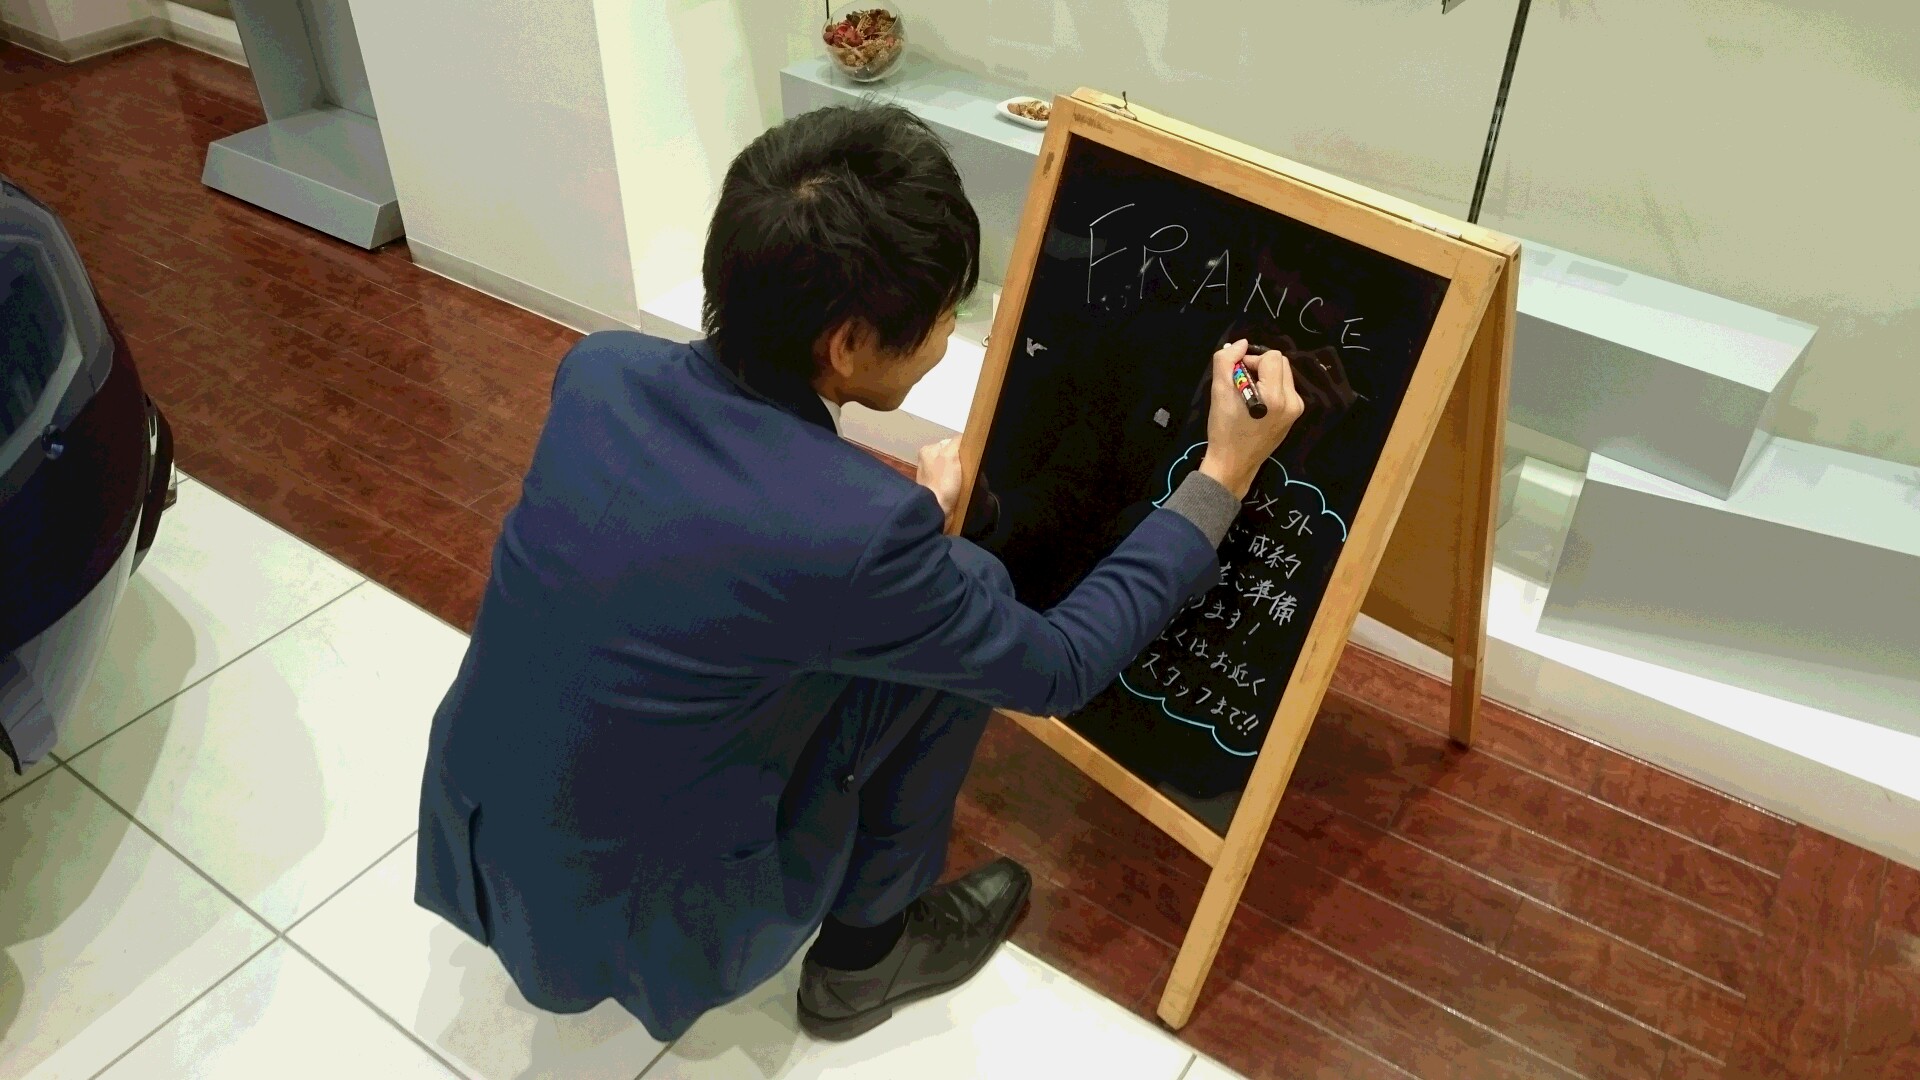 FRANCE
以外
ご成約
をご準備
ります!
しくはお近く
スタッフまで!!